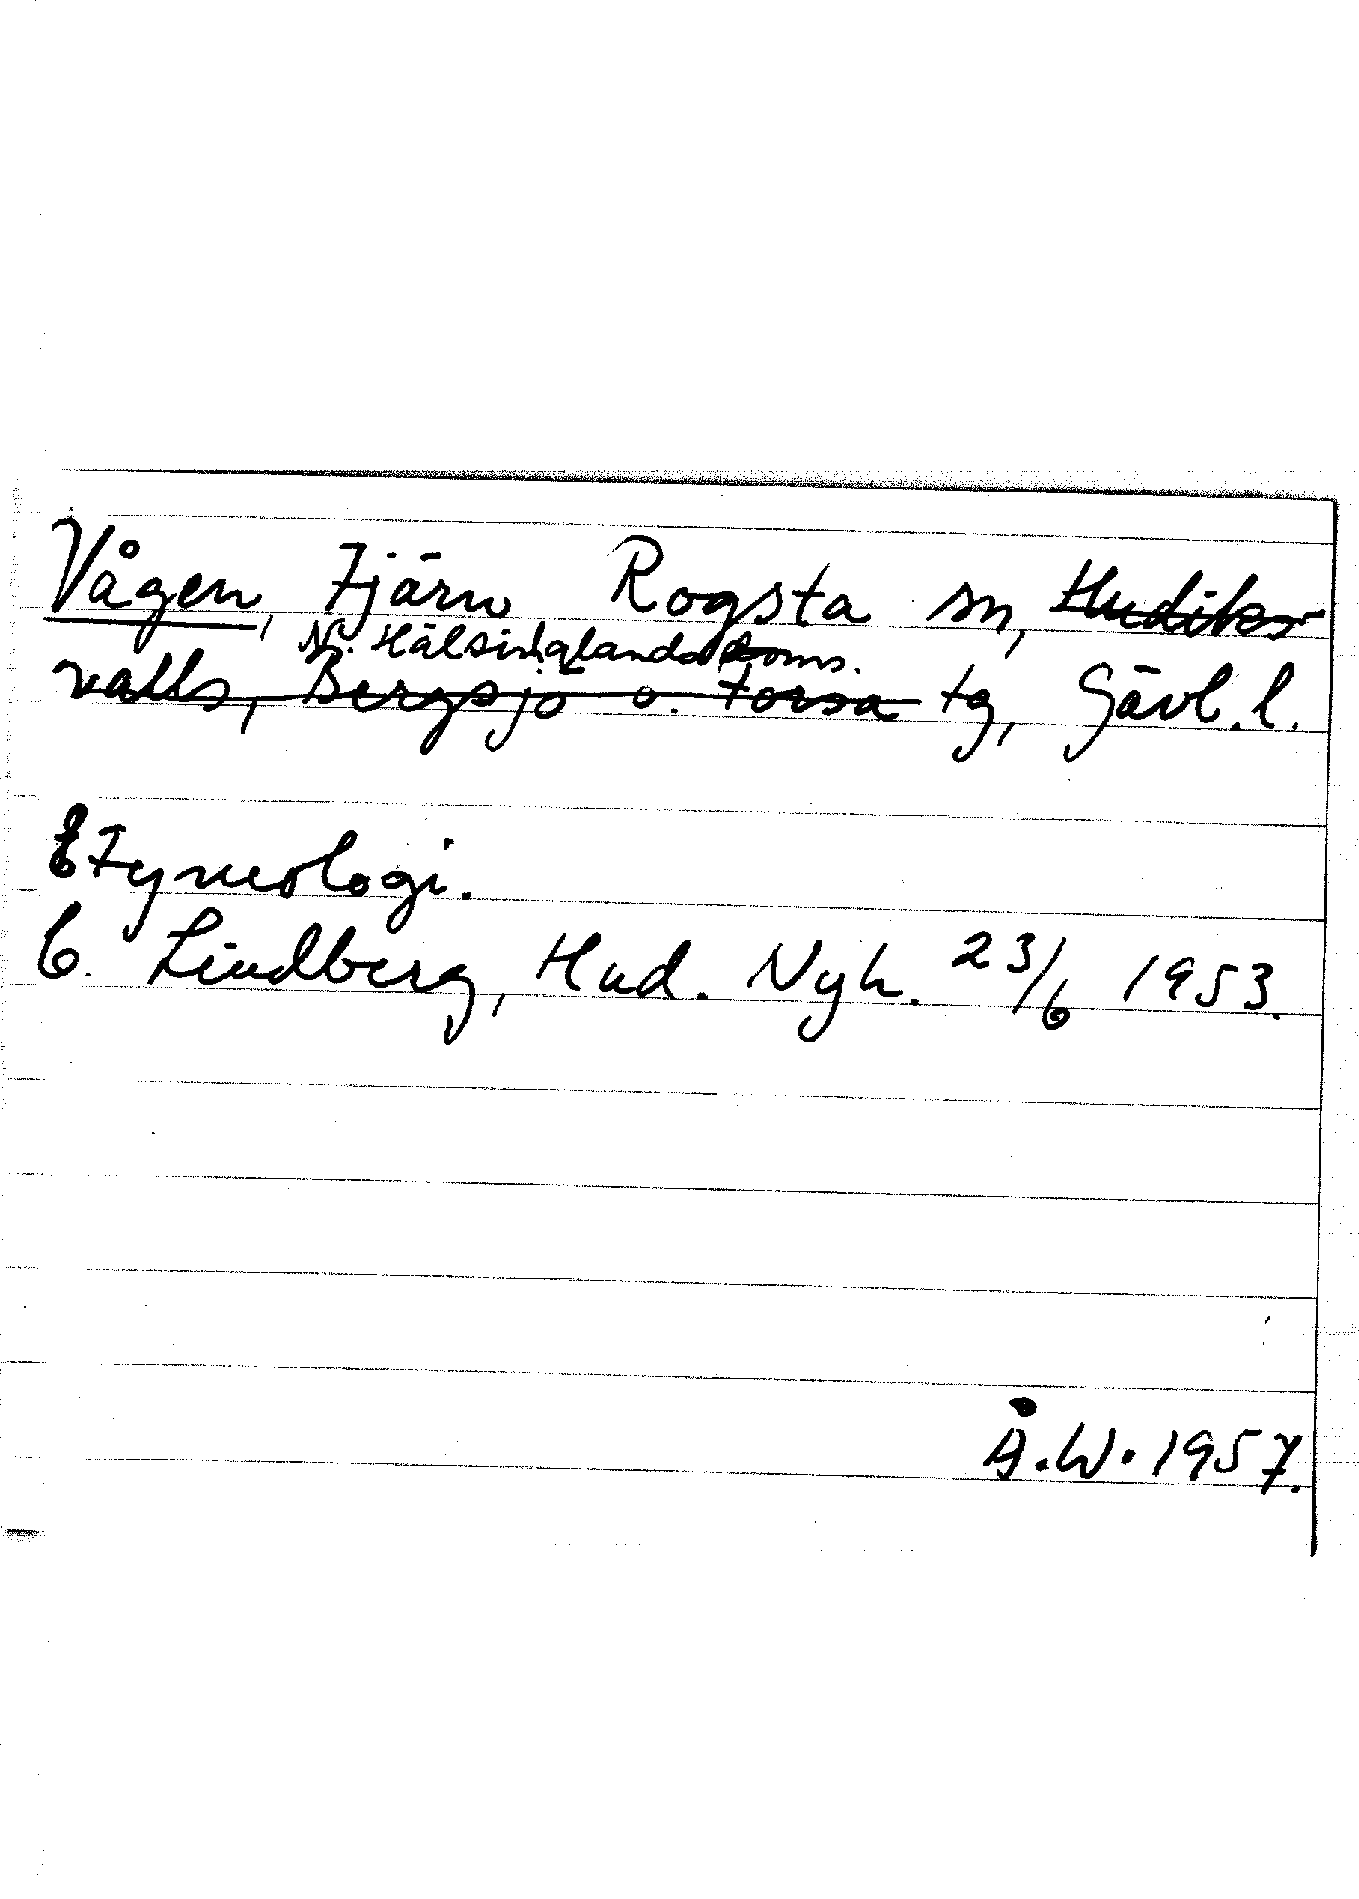 Vågen, Tjärn Rogsta sn, Hudiks-
N. Hälsinglands doms.
valls, Bergsjö o. Forsa tg, Gävl. l.
Etymologi.
C. Lindberg, Hud. Nyh. 23/6 1953.
Å.W. 1957.